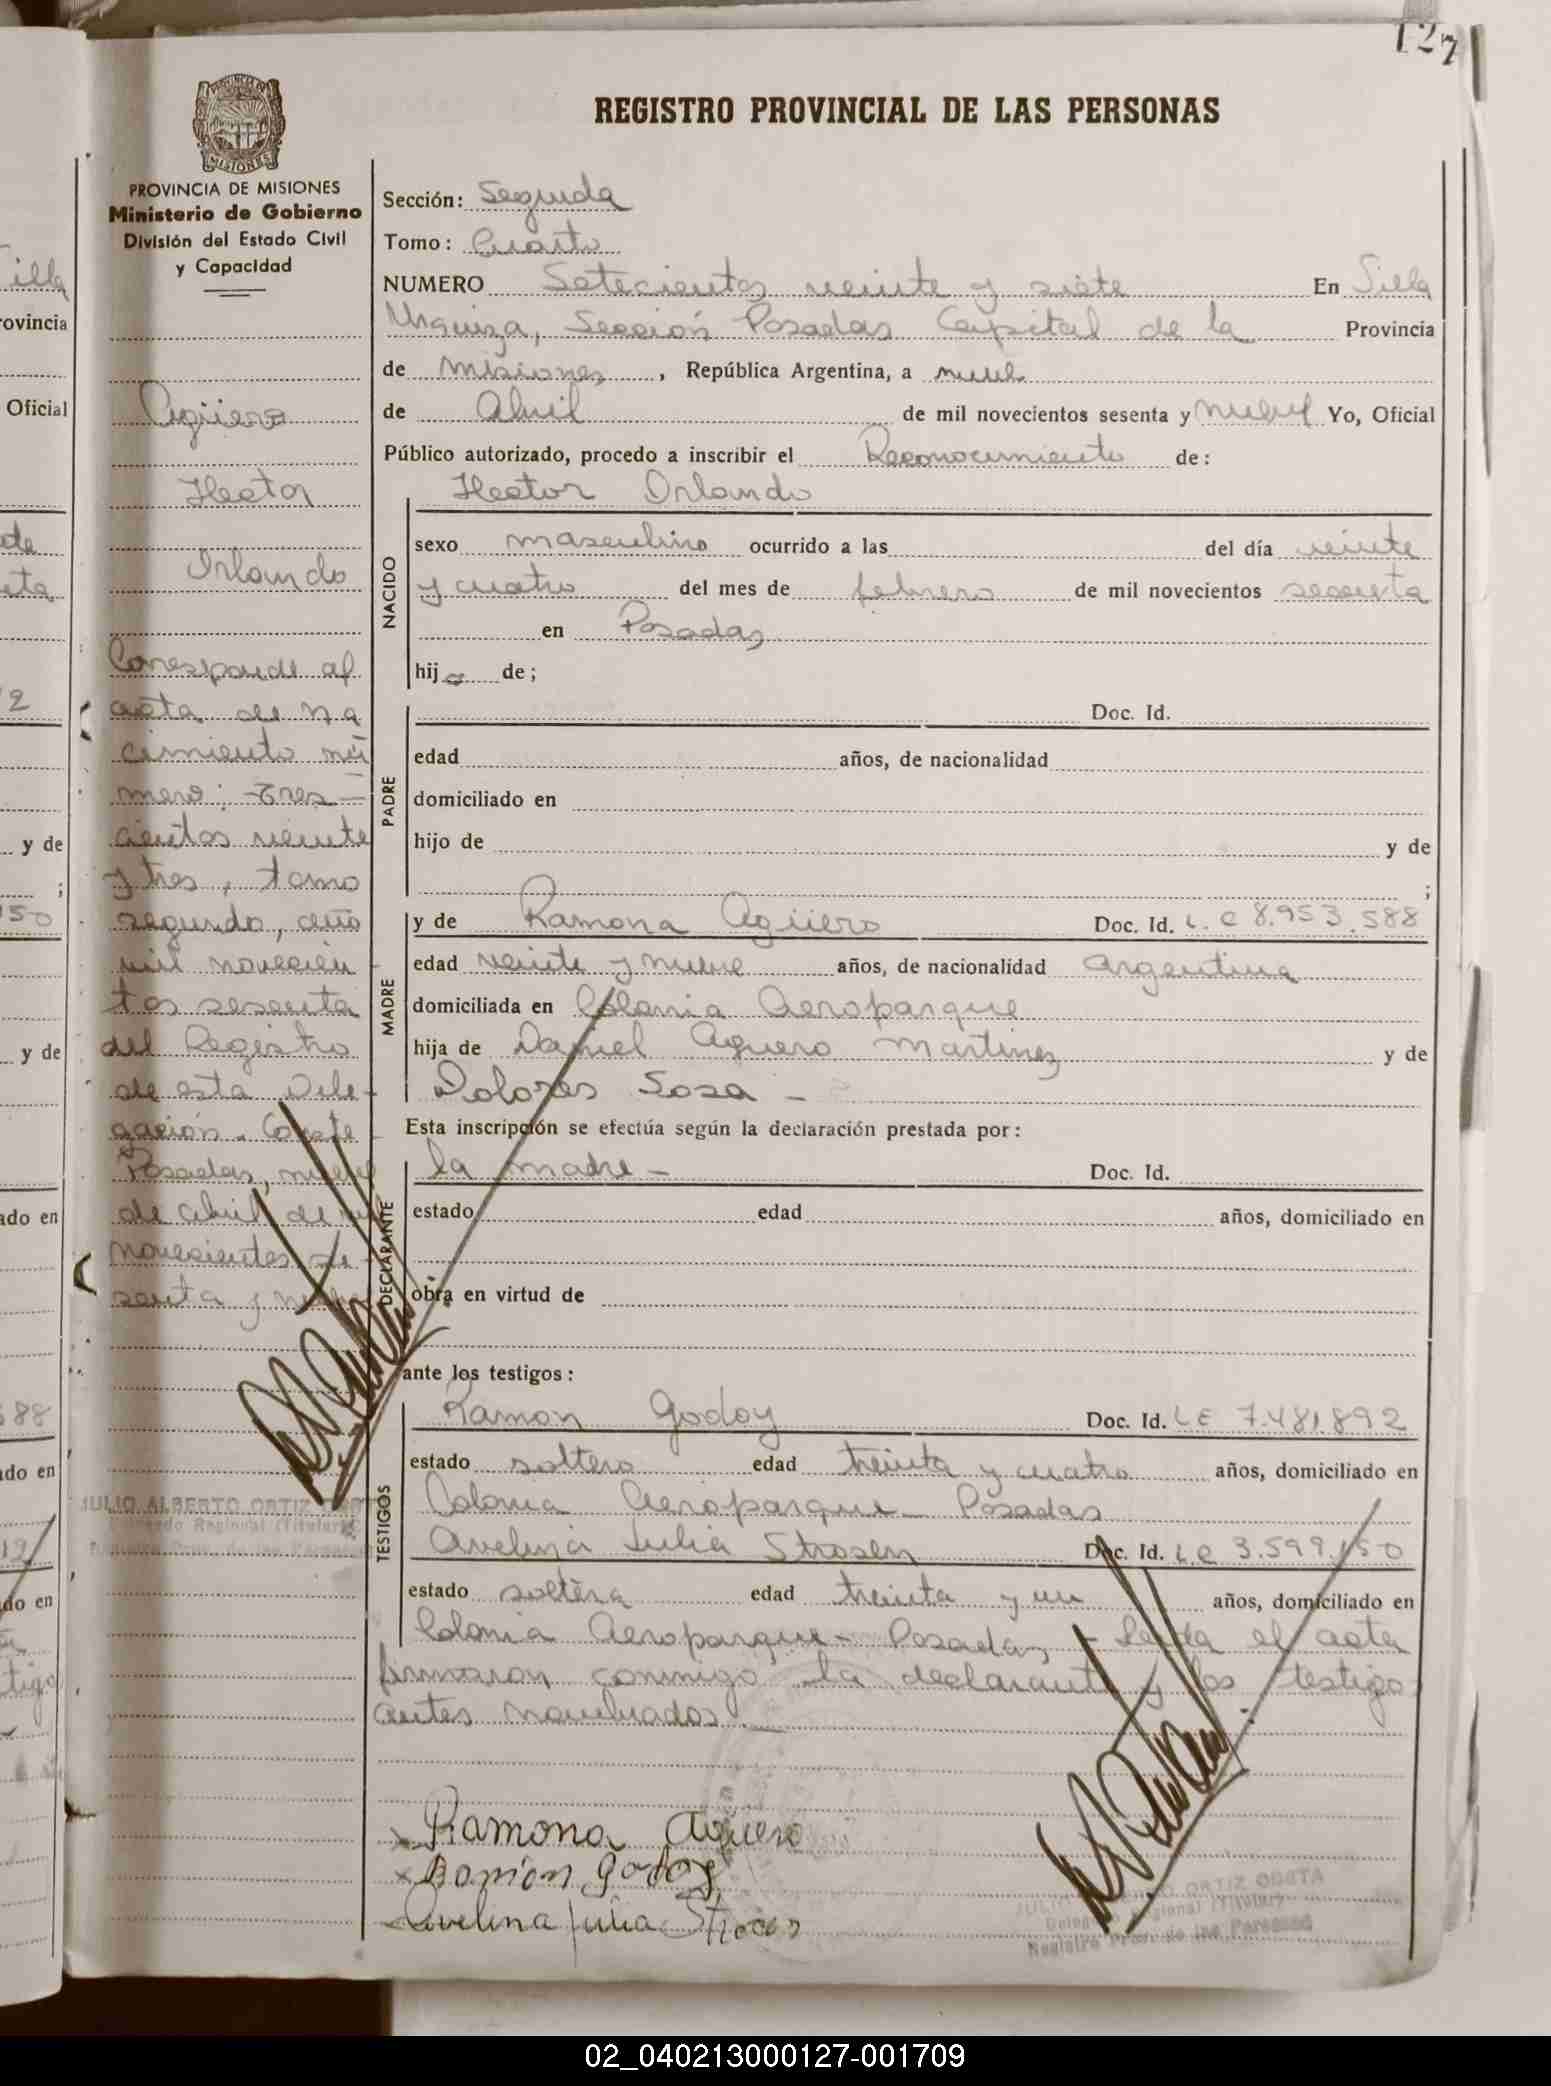 127
REGISTRO PROVINCIAL DE LAS PERSONAS
PROVINCIA DE MISIONES
Ministerio de Gobierno
División del Estado Civil
y Capacidad
Agüero
Hector
Orlando
Corresponde al
acta de na
cimiento nú
mero: tres-
cientos veinte
y tres, tomo
segundo, año
mil novecien
tos sesenta
del Registro
de esta Dele-
gación. Conste-
Posadas, nueve
de abril de mil
novecientos se-
senta y nueve
JULIO ALBERTO ORTIZ COSTA
Delegado Regional (Titular)
Registro Prov. de las Personas
Sección: Segunda
Tomo: Cuarto
NUMERO Setecientos veinte y siete En Villa
Urquiza, Sección Posadas Capital de la Provincia
de Misiones, República Argentina, a nueve
de Abril de mil novecientos sesenta y nueve Yo, Oficial
Público autorizado, procedo a inscribir el Reconocimiento de:
Hector Orlando
NACIDO
sexo masculino ocurrido a las del día veinte
y cuatro del mes de febrero de mil novecientos sesenta
en Posadas
hijo de;
PADRE
Doc. Id.
edad años, de nacionalidad
domiciliado en
hijo de y de
;
MADRE
y de Ramona Agüero Doc. Id. L.C 8.953.588
edad veinte y nueve años, de nacionalidad argentina
domiciliada en Colonia Aeroparque
hija de Daniel Aguero Martinez y de
Dolores Sosa -
Esta inscripción se efectúa según la declaración prestada por:
DECLARANTE
la madre - Doc. Id.
estado edad años, domiciliado en
obra en virtud de
ante los testigos:
TESTIGOS
Ramon Godoy Doc. Id. LE 7.481.892
estado soltero edad treinta y cuatro años, domiciliado en
Colonia Aeroparque - Posadas
Avelina Julia Strosen Doc. Id. L.C 3.599.150
estado soltera edad treinta y un años, domiciliado en
Colonia Aeroparque - Posadas - Leida el acta
firmaron conmigo la declarante y los testigos
antes nombrados. -
x Ramona Aguero
x Ramón Godoy
Avelina Julia
JULIO ALBERTO ORTIZ COSTA
Delegado Regional (Titular)
Registro Prov. de las Personas
illa
ovincia
Oficial
y de
;
50
y de
ado en
588
ado en
do en
02_040213000127-001709